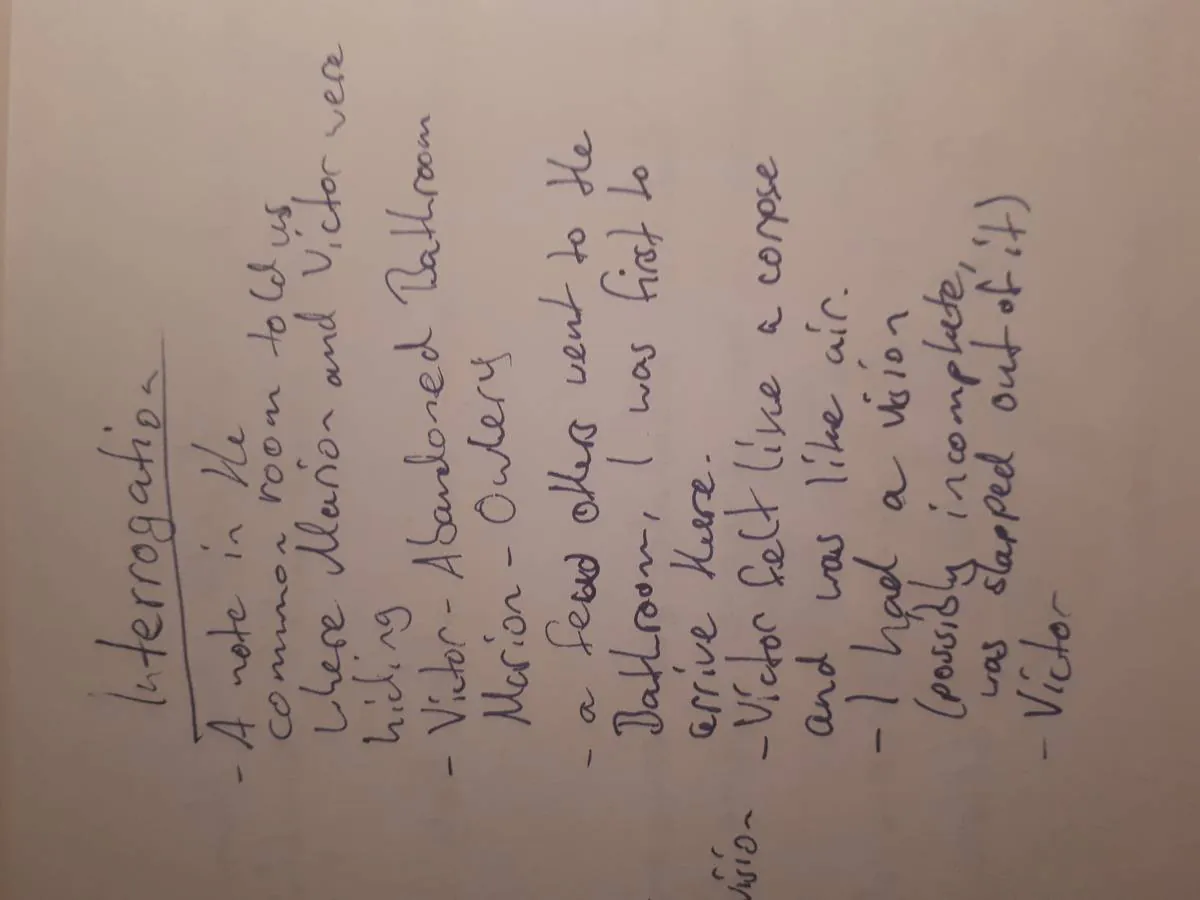 Interrogation
- A note in the
common room told us
where Marion and Victor were
hiding
- Victor - Abandoned Bathroom
Marion - Owlery
- a few others went to the
Bathroom, I was first to
arrive there.
- Victor felt like a corpse
and was like air.
- I had a vision
(possibly incomplete,
was slapped out of it)
- Victor
vision